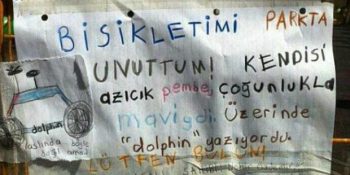 BISIKLETIMI PARKTA
UNUTTUM! KENDISI
azıcık pembe, çoğunlukla
mavigdi. Üzerinde
"dolphin" yazıyordu.
LÜTFEN BULUN!
dolphin
aslında böyle
değil ama